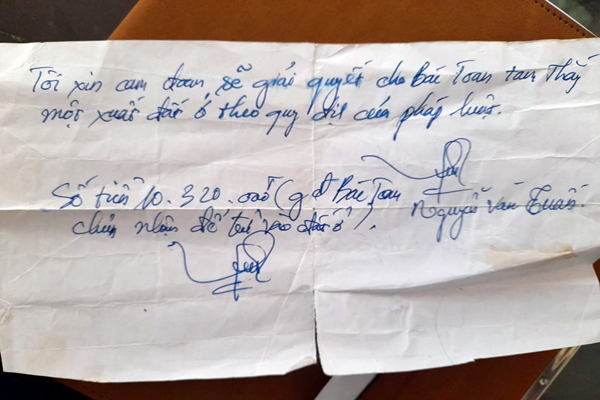 Tôi xin cam đoan sẽ giải quyết cho Bác Toan tam Thấy
một xuất đất ở theo quy định của pháp luật.
Số tiền 10.320.000 (gđ Bác Toan
chấp nhận để trừ vào đất ở).
Nguyễn Văn Tuấn